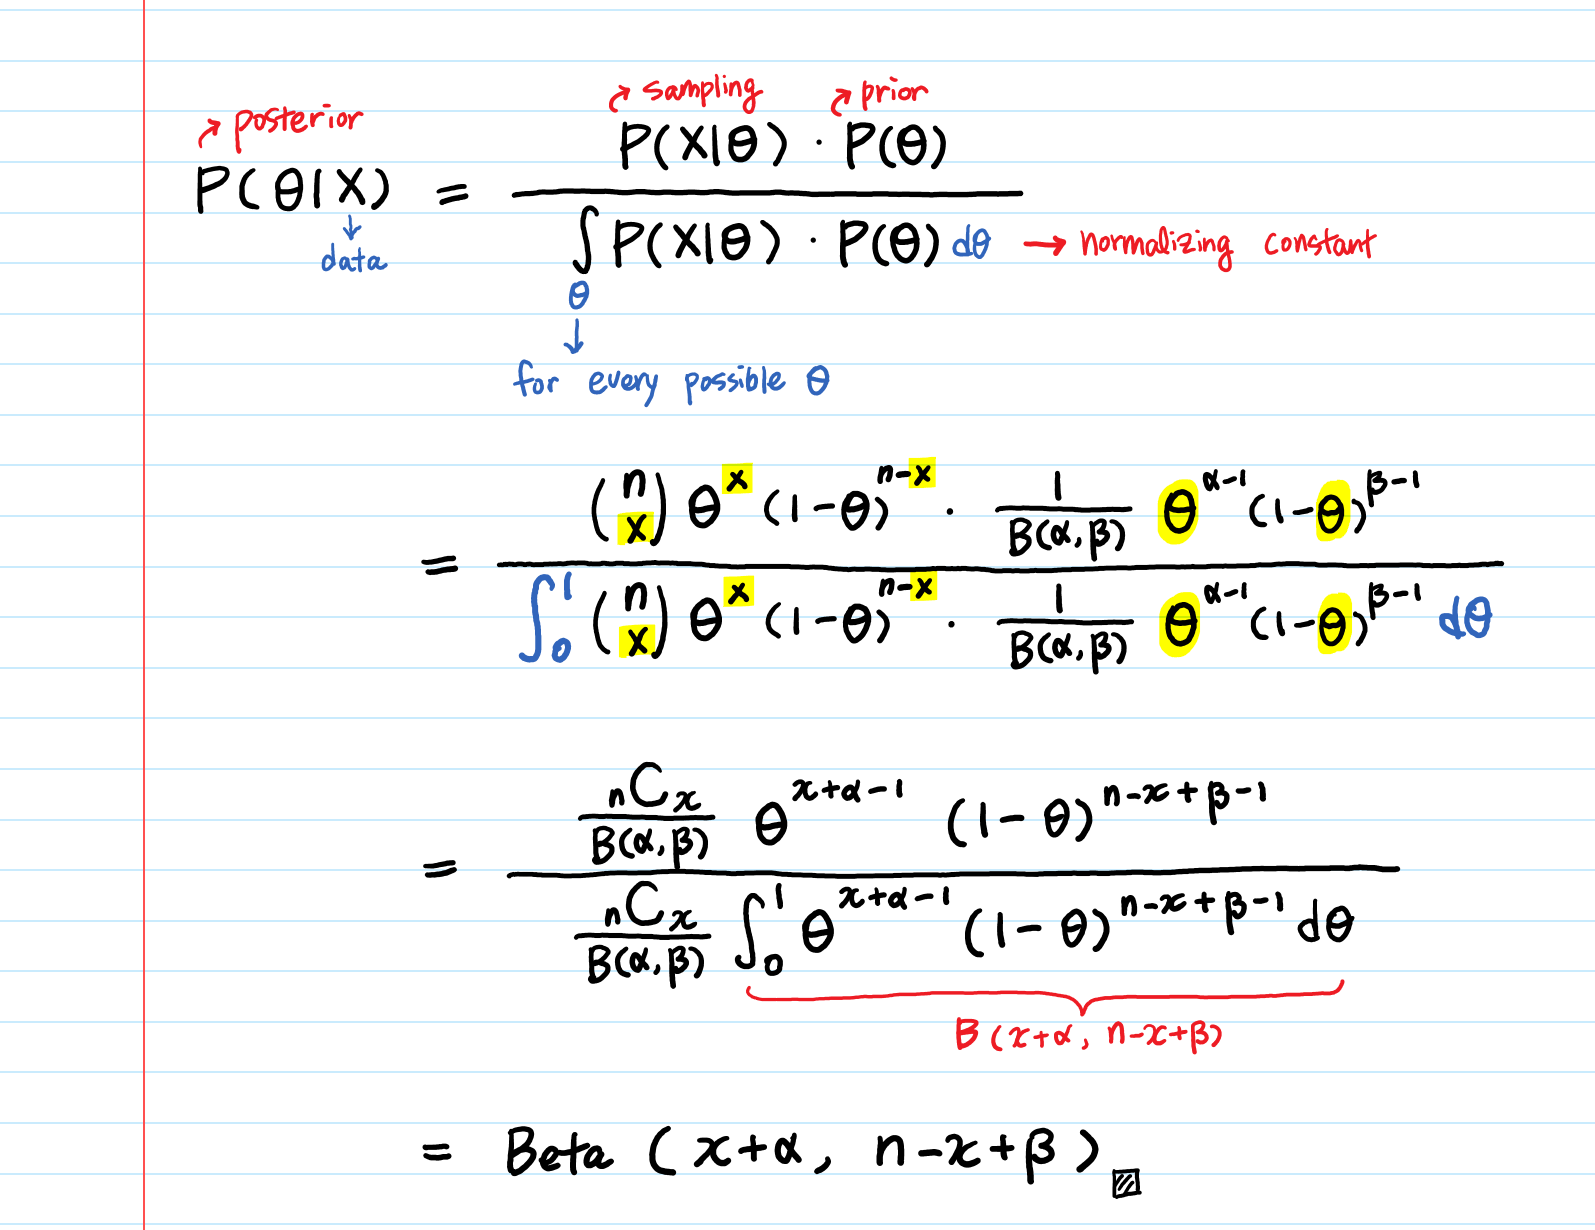 posterior
sampling
prior
P(θ|X) = P(X|θ) · P(θ)
∫ P(X|θ) · P(θ) dθ → normalizing constant
θ
data
for every possible θ
= (n x) θ^x (1-θ)^(n-x) · 1/B(α,β) θ^(α-1) (1-θ)^(β-1)
∫_0^1 (n x) θ^x (1-θ)^(n-x) · 1/B(α,β) θ^(α-1) (1-θ)^(β-1) dθ
= nCx/B(α,β) θ^(x+α-1) (1-θ)^(n-x+β-1)
nCx/B(α,β) ∫_0^1 θ^(x+α-1) (1-θ)^(n-x+β-1) dθ
B(x+α, n-x+β)
= Beta (x+α, n-x+β)